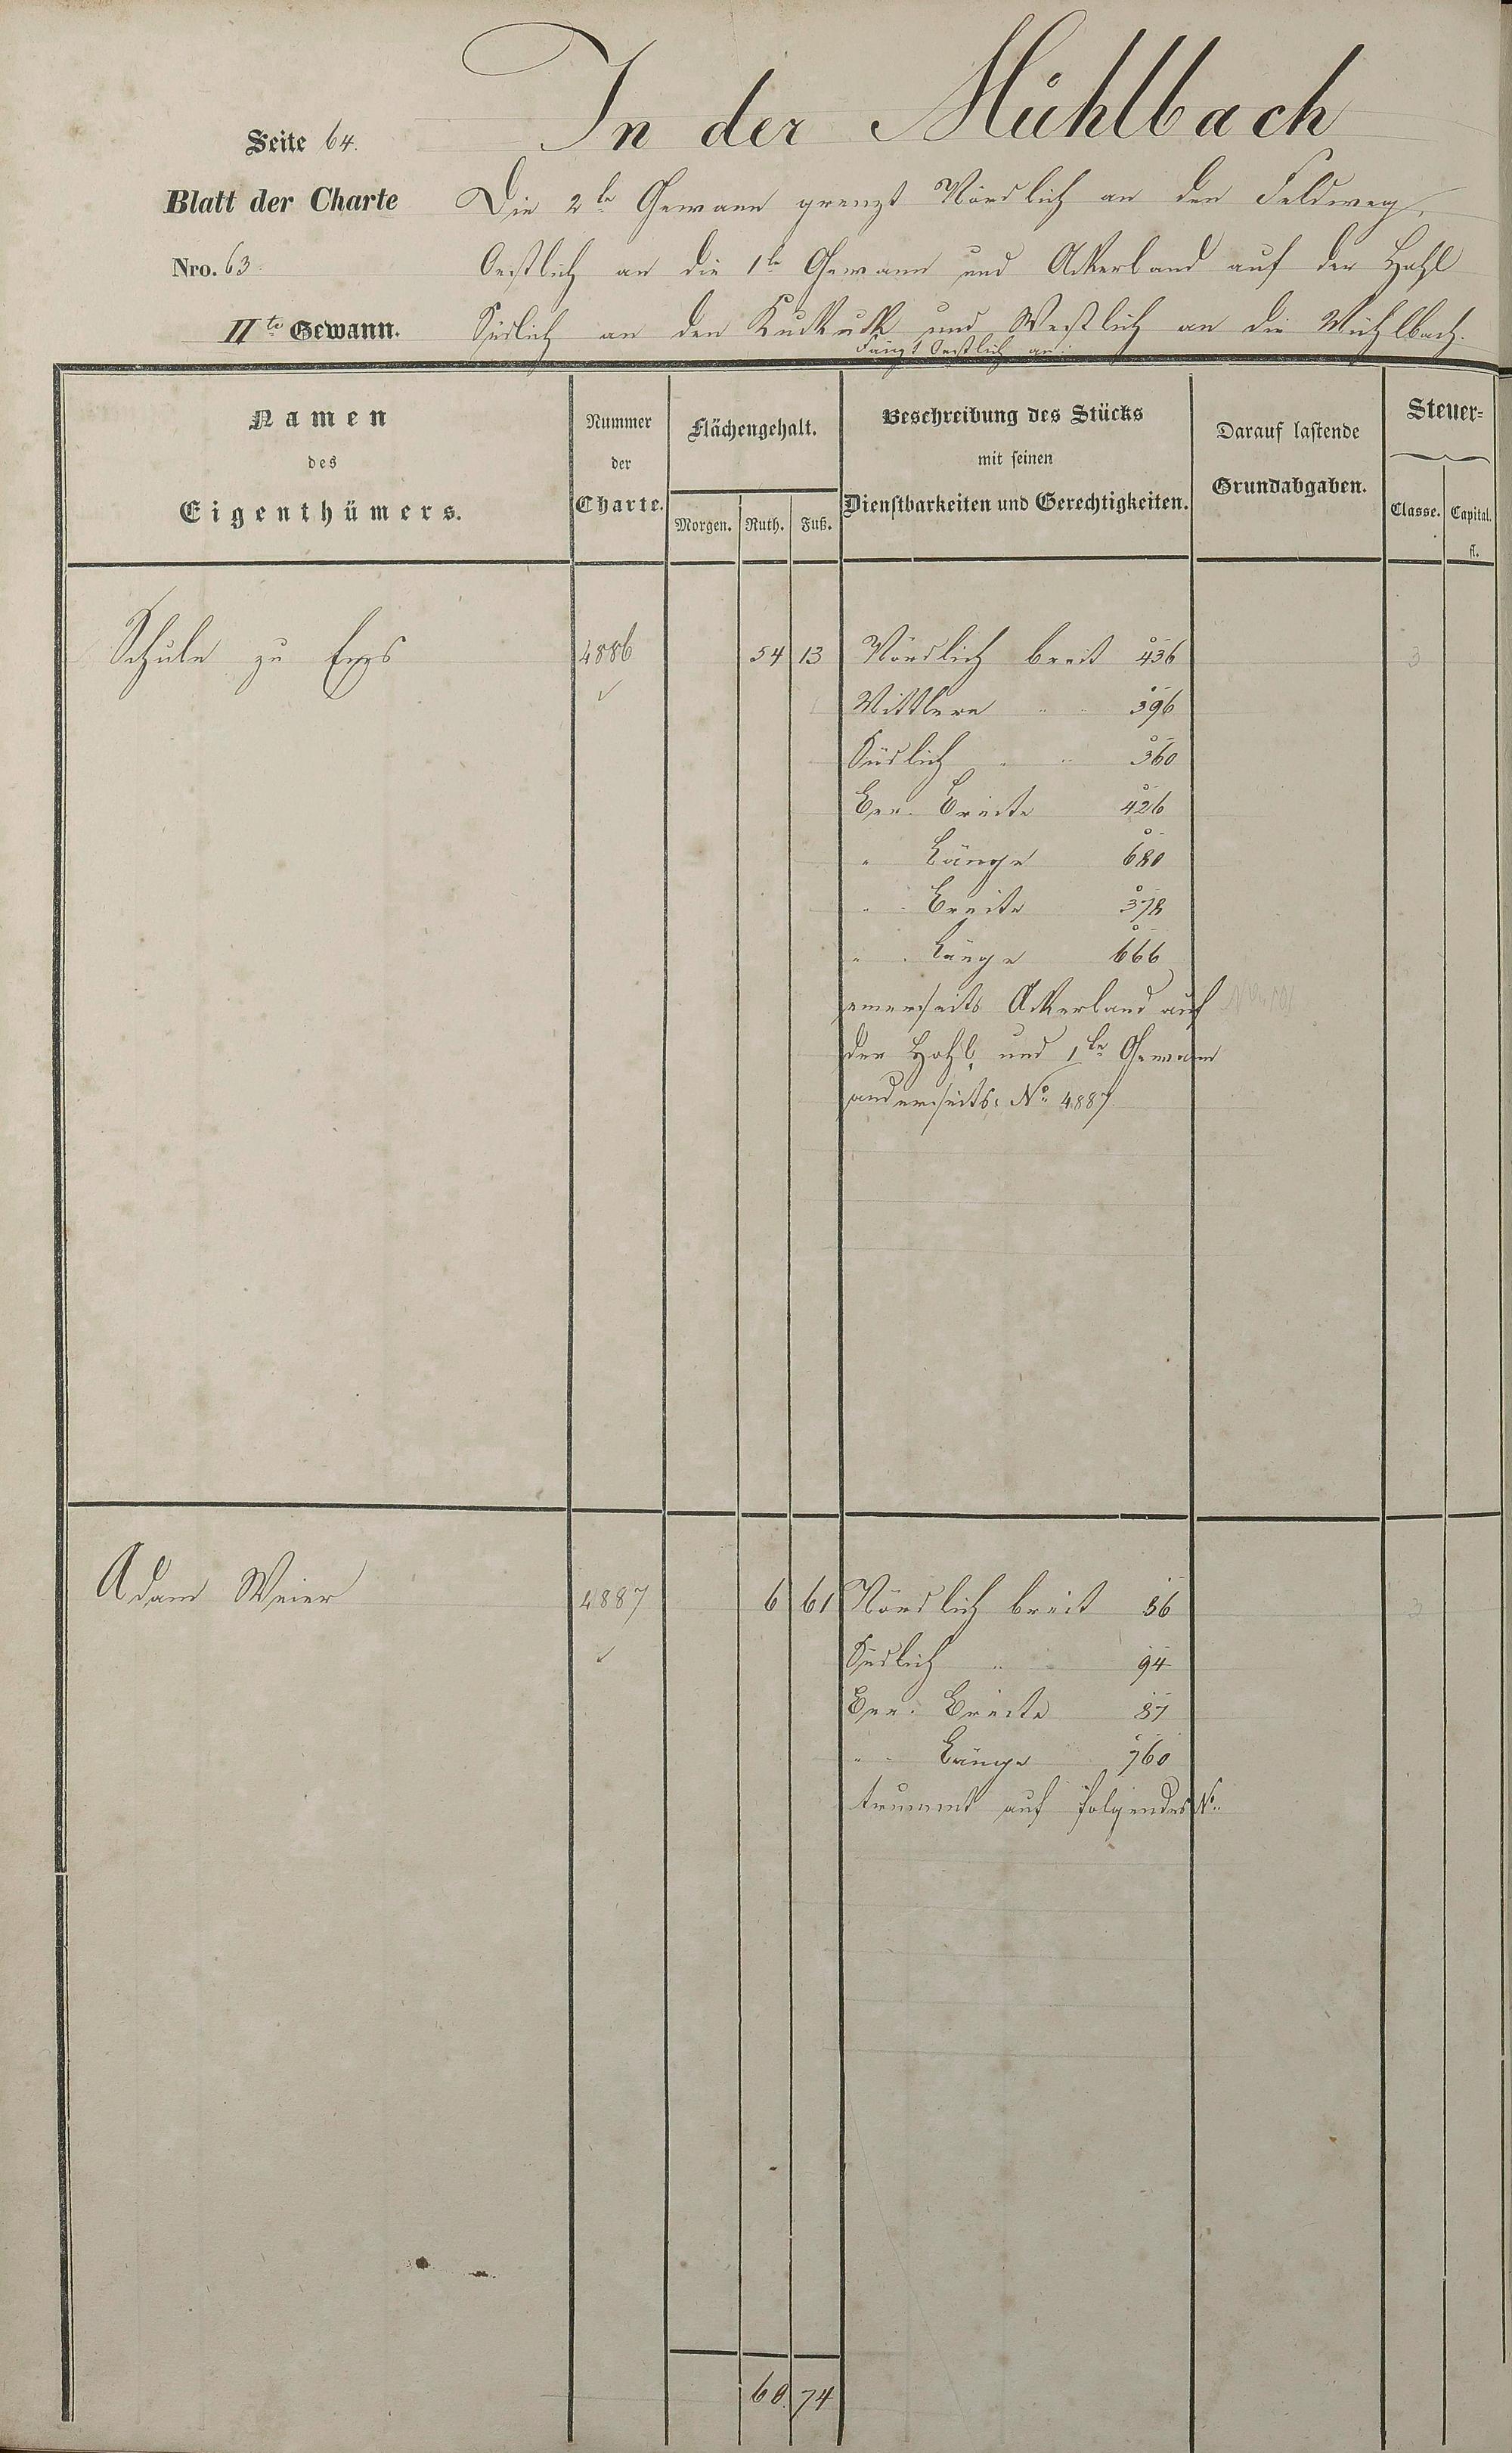 In der Mühlbach
Seite 64.
Blatt der Charte
Nro. 63.
IIte Gewann.
Die 2te Gewann grenzt Nördlich an den Feldweg,
Oestlich an die 1te Gewann und Ackerland auf der Hohl
Südlich an den Kuckuck und Westlich an die Mühlbach.
Fängt Oestlich an:
Namen
des
Eigenthümers.
Nummer
der
Charte.
Flächengehalt.
Morgen. Ruth. Fuß.
Beschreibung des Stücks
mit seinen
Dienstbarkeiten und Gerechtigkeiten.
Darauf lastende
Grundabgaben.
Steuer-
Classe. Capital.
fl.
Schule zu Ems 4886 54 13 Nördlich breit 436 3
Mittlere " " 396
Südlich " " 360
Ber. Breite 426
" Länge 680
" Breite 378
" Länge 666
einerseits Ackerland auf
der Hohl, und 1te Gewann
anderseits: No 4887
Adam Weier 4887 6 61 Nördlich breit 36 3
Südlich " " 94
Ber. Breite 87
" Länge 760
trummt auf folgendes No.
60 74